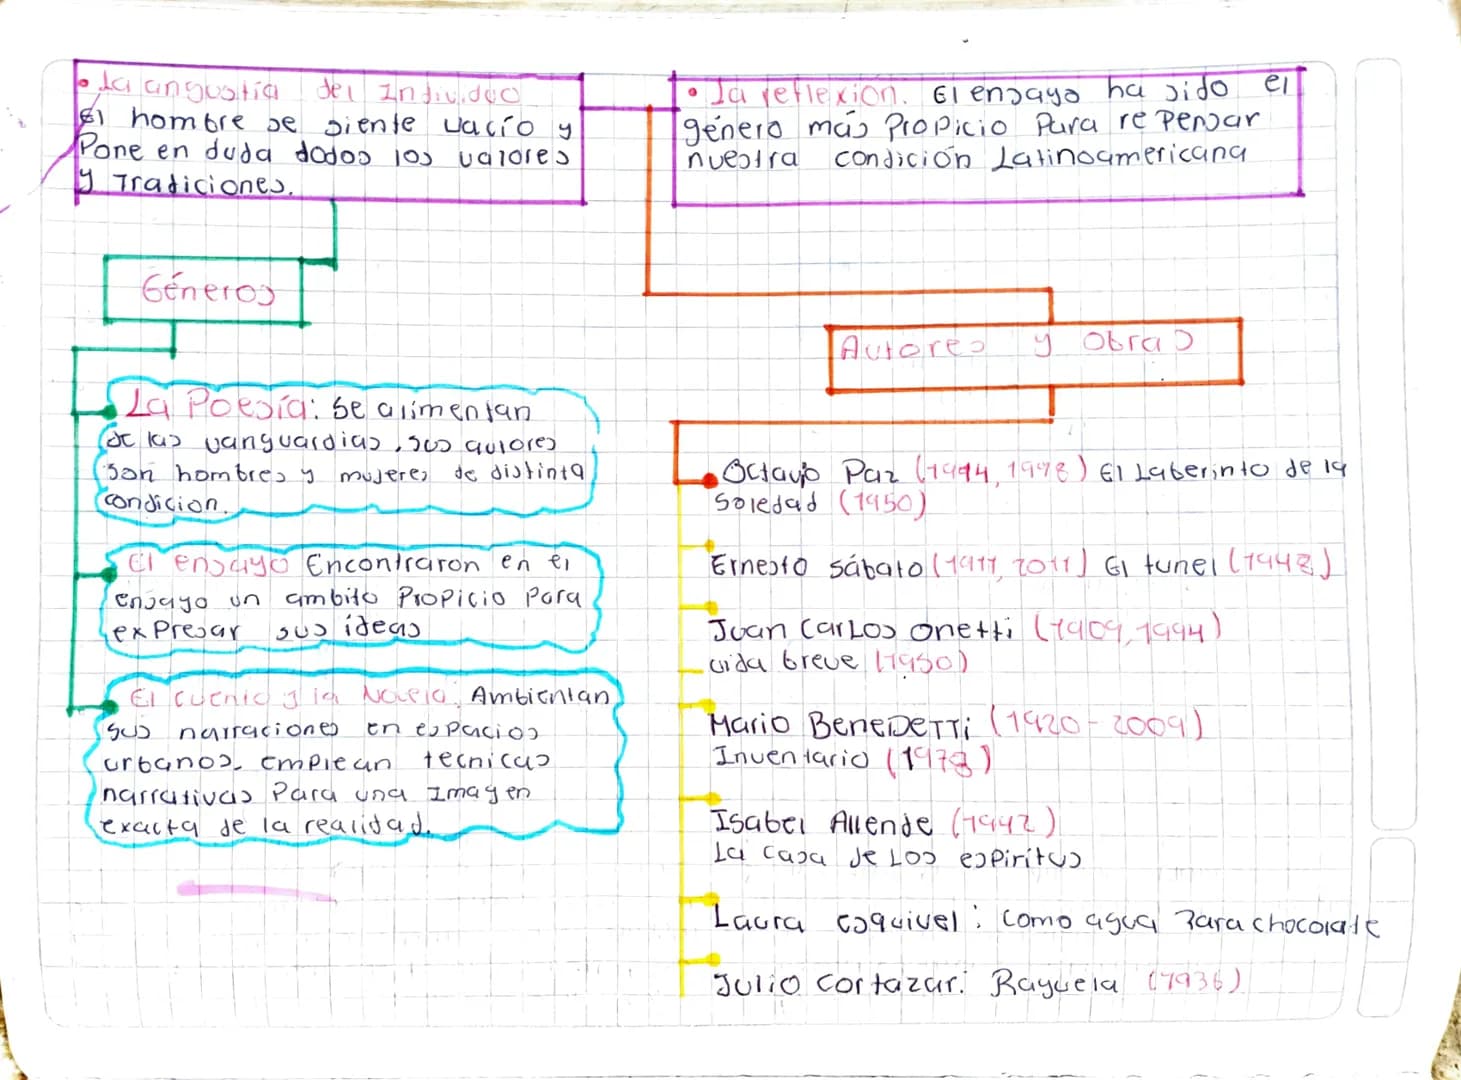 • La angustia del Individuo
El hombre se siente vacío y
Pone en duda dodos los valores
y Tradiciones.
• La reflexion. El ensayo ha sido el
género más Propicio Para re Pensar
nuestra condición Latinoamericana
Géneros
La Poesía: Se alimentan
de las vanguardias, sus autores
son hombres y mujeres de distinta
condicion.
El ensayo Encontraron en el
ensayo un ambito Propicio Para
expresar sus ideas
El cuento y la Novela: Ambientan
sus narraciones en espacios
urbanos. emplean tecnicas
narrativas Para una Imagen
exacta de la realidad.
Autores y Obras
Octavio Paz (1914, 1998) El Laberinto de la
Soledad (1950)
Ernesto sábato (1911, 2011) El tunel (1948)
Juan Carlos onetti (1909, 1994)
vida breve (1950)
Mario BeneDeTTi (1920-2009)
Inventario (1978)
Isabel Allende (1942)
La Casa de Los espiritus
Laura esquivel: Como agua Para chocolate
Julio Cortazar: Rayuela (1936)